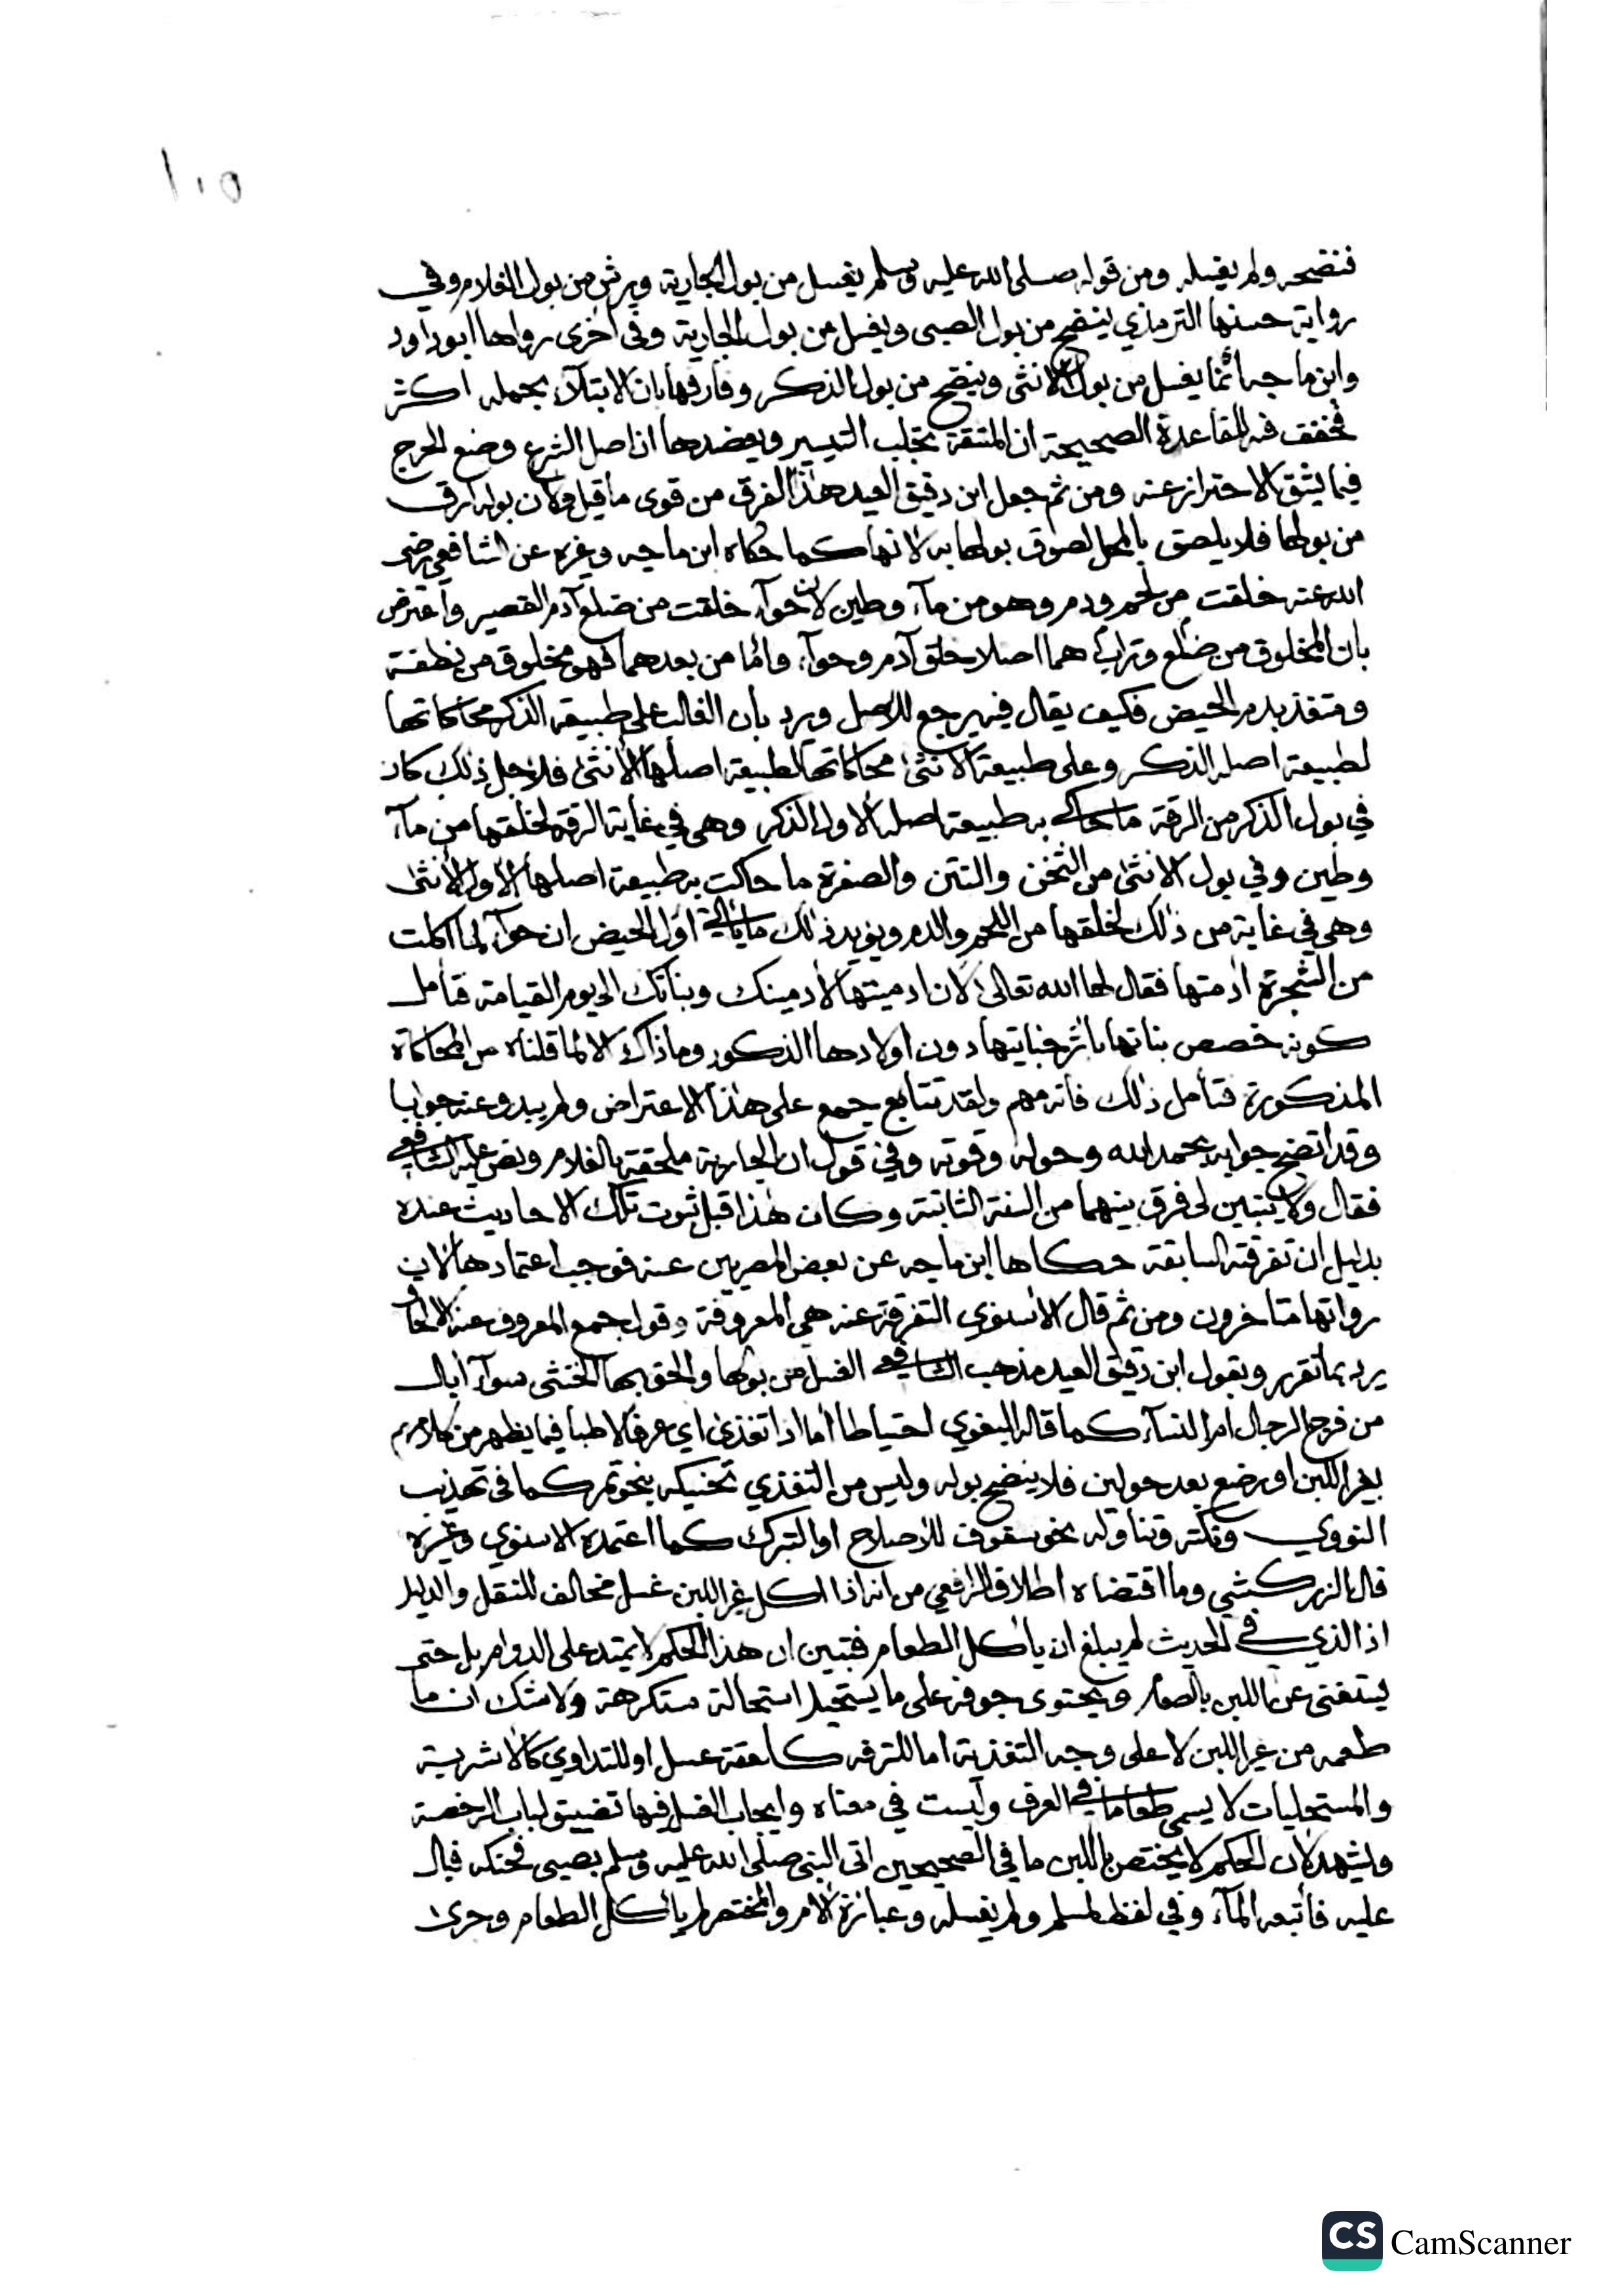 ١٠٥
فنضحه ولم يغسله ومن قوله صلى الله عليه وسلم يغسل من بول الجارية ويرش من بول الغلام وفي
رواية حسنها الترمذي ينضح من بول الصبى ويغسل من بول الجارية وفى أخرى رواها ابو داود
وابن ماجه انما يغسل من بول الانثى وينضح من بول الذكر وفارقها بان الابتلآء بحمله اكثر
فخفف فيه للقاعدة الصحيحة ان المشقة تجلب التيسير ويعضدها ان اصل الشرع وضع الحرج
فيما يشق الاحتراز عنه ومن ثم جعل ابن دقيق العيد هذا الفرق من قوى ما قيل وكان بوله ارق
من بولها فلا يلصق بالمحل لصوق بولها به لانها كما حكاه ابن ماجه وغيره عن الشافعي رضى
الله عنه خلقت من لحم ودم وهو من مآء وطين لان حوآء خلقت من ضلع آدم القصير واعترض
بان المخلوق من ضلع وتراب هما اصلا خلق آدم وحوآء وأما من بعدهما فهو مخلوق من نطفة
ومتغذ بدم الحيض فكيف يقال فيه يرجع للاصل ويرد بأن الغالب على طبيعة الذكر محاكاتها
لطبيعة اصله الذكر وعلى طبيعة الانثى محاكاتها لطبيعة اصلها الأنثى فلاجل ذلك كان
في بول الذكر من الرقة ما حاكى به طبيعة اصله الاول الذكر وهى في غاية الرقة لخلقها من مآء
وطين وفي بول الانثى من الثخن والنتن والصفرة ما حاكت به طبيعة اصلها الأول الأنثى
وهى في غاية من ذلك لخلقها من اللحم والدم ويويد ذلك ما يأتي اول الحيض ان حوآء لما اكلت
من الشجرة ادمتها فقال لها الله تعالى لان ادميتها لأدمينك وبناتك الى يوم القيامة فتأمل
كونه خصص بناتها باثر جنايتها دون اولادها الذكور وما ذاك الا لما قلناه من المحاكاة
المذكورة فتأمل ذلك فانه مهم ولقد تتابع جمع على هذا الاعتراض ولم يبدو عنه جوابا
وقد اتضح جوابه بحمد الله وحوله وقوته وفي قول ان الجارية ملحقة بالغلام ونص عليه الشافعي
فقال ولا يتبين لى فرق بينهما من السنة الثابتة وكان هذا قبل ثبوت تلك الاحاديث عنده
بدليل ان تفرقته السابقة حكاها ابن ماجه عن بعض المصريين عنه فوجب اعتمادها لان
رواتها متاخرون ومن ثم قال الأسنوي التفرقة عنه هى المعروفة وقول جمع المعروف عنه الالحاق
يرد بما تقرر وبقول ابن دقيق العيد مذهب الشافعي الغسل من بولها والحق بها الخنثى سوآء أبال
من فرج الرجال ام النسآء كما قاله البغوي احتياطا أما اذا تغذى اي عرفا لا طبا فيما يظهر من كلامهم
بغير اللبن او رضع بعد حولين فلا ينضح بوله وليس من التغذي تحنيكه بنحو تمر كما في تهذيب
النووي ونكته وتناوله نحو سفوف للأصلاح او التبرك كما اعتمده الاسنوي وغيره
قال الزركشي وما اقتضاه اطلاق الرافعي من انه اذا اكل غير اللبن غسل مخالف للنقل والدليل
اذ الذي في الحديث لم يبلغ ان يأكل الطعام فتبين ان هذا الحكم لا يمتد على الدوام بل حتى
يستغنى عن اللبن بالطعام ويحتوى جوفه على ما يستحيل استحالة مستكرهة ولا شك ان ما
طعمه من غير اللبن لا على وجه التغذية اما للترفه كلعقة عسل او للتداوي كالأشربة
والمستحليات لا يسمى طعاما في العرف وليست في معناه وايجاب الغسل فيها تضييق لباب الرخصة
ويشهد لأن الحكم لا يختص باللبن ما في الصحيحين اتى النبى صلى الله عليه وسلم بصبى فحنكه فبال
عليه فأتبعه المآء وفي لفظ لمسلم ولم يغسله وعبارة الأم والمختصر لم يأكل الطعام وجرى
CS CamScanner